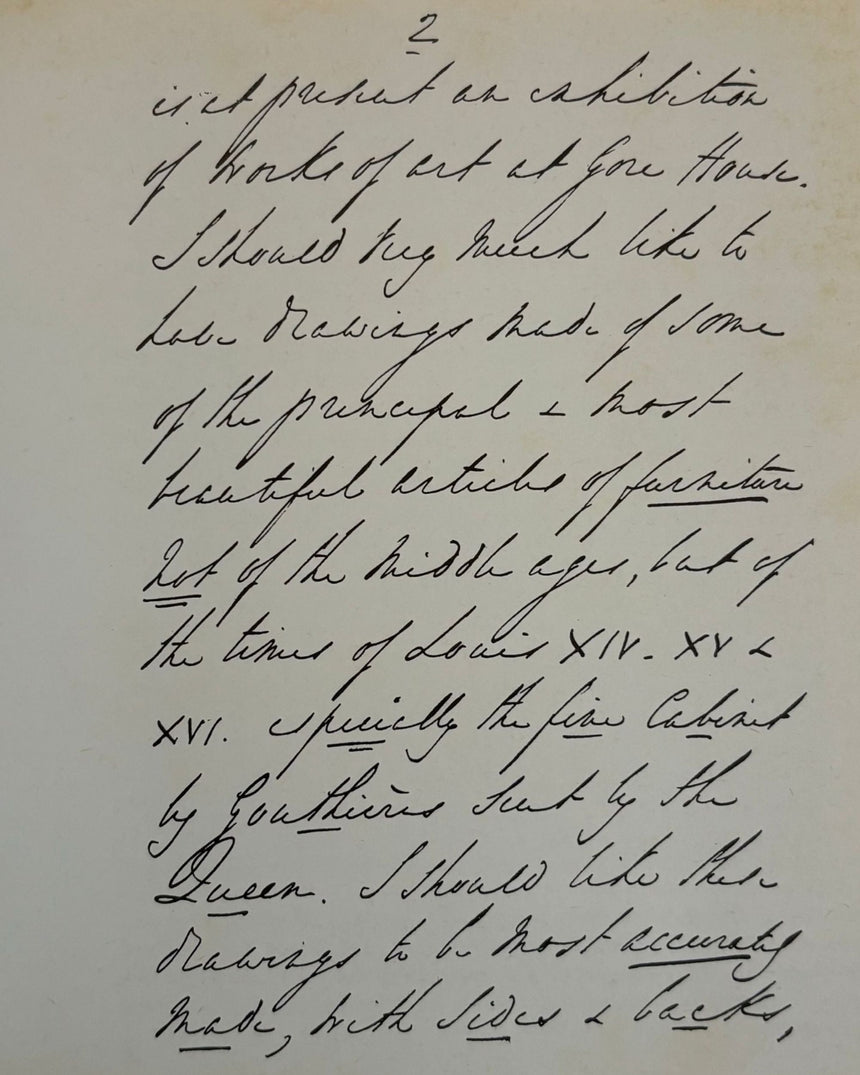 2
is at present an exhibition
of works of art at Gore House.
I should very much like to
have drawings made of some
of the principal & most
beautiful articles of furniture
not of the Middle ages, but of
the times of Louis XIV. XV &
XVI. especially the fine Cabinet
by Gouthières sent by the
Queen. I should like these
drawings to be most accurately
made, with sides & backs,